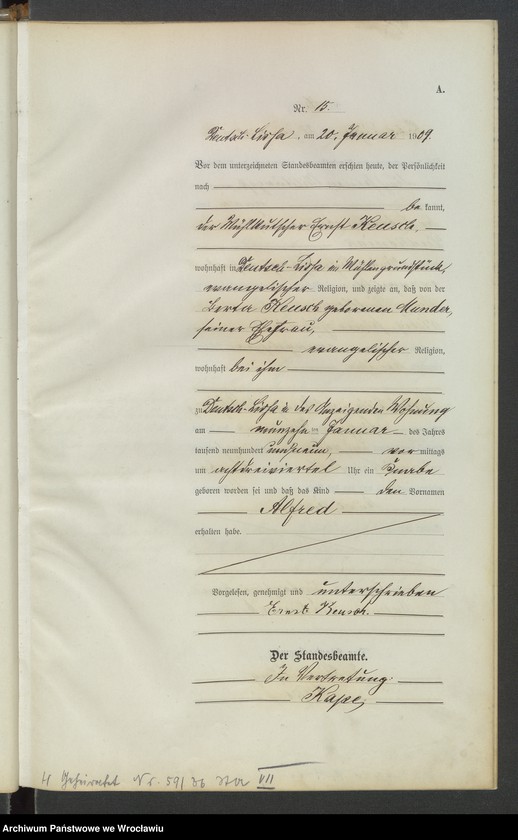 A.
Nr. 15.
Deutsch-Lissa, am 20. Januar 1909.
Vor dem unterzeichneten Standesbeamten erschien heute, der Persönlichkeit
nach
bekannt,
der Mühlkutscher Ernst Keusch,
wohnhaft in Deutsch-Lissa in Mühlengrundstück,
evangelischer Religion, und zeigte an, daß von der
Berta Keusch geborenen Mander,
seiner Ehefrau,
evangelischer Religion,
wohnhaft bei ihm
zu Deutsch-Lissa in des Anzeigenden Wohnung
am neunzehnten Januar des Jahres
tausend neunhundert undneun, vormittags
um achtdreiviertel Uhr ein Knabe
geboren worden sei und daß das Kind den Vornamen
Alfred
erhalten habe.
Vorgelesen, genehmigt und unterschrieben
Ernst Keusch.
Der Standesbeamte.
In Vertretung
H Geheiratet Nr. 59/36 StA VII
Archiwum Państwowe we Wrocławiu